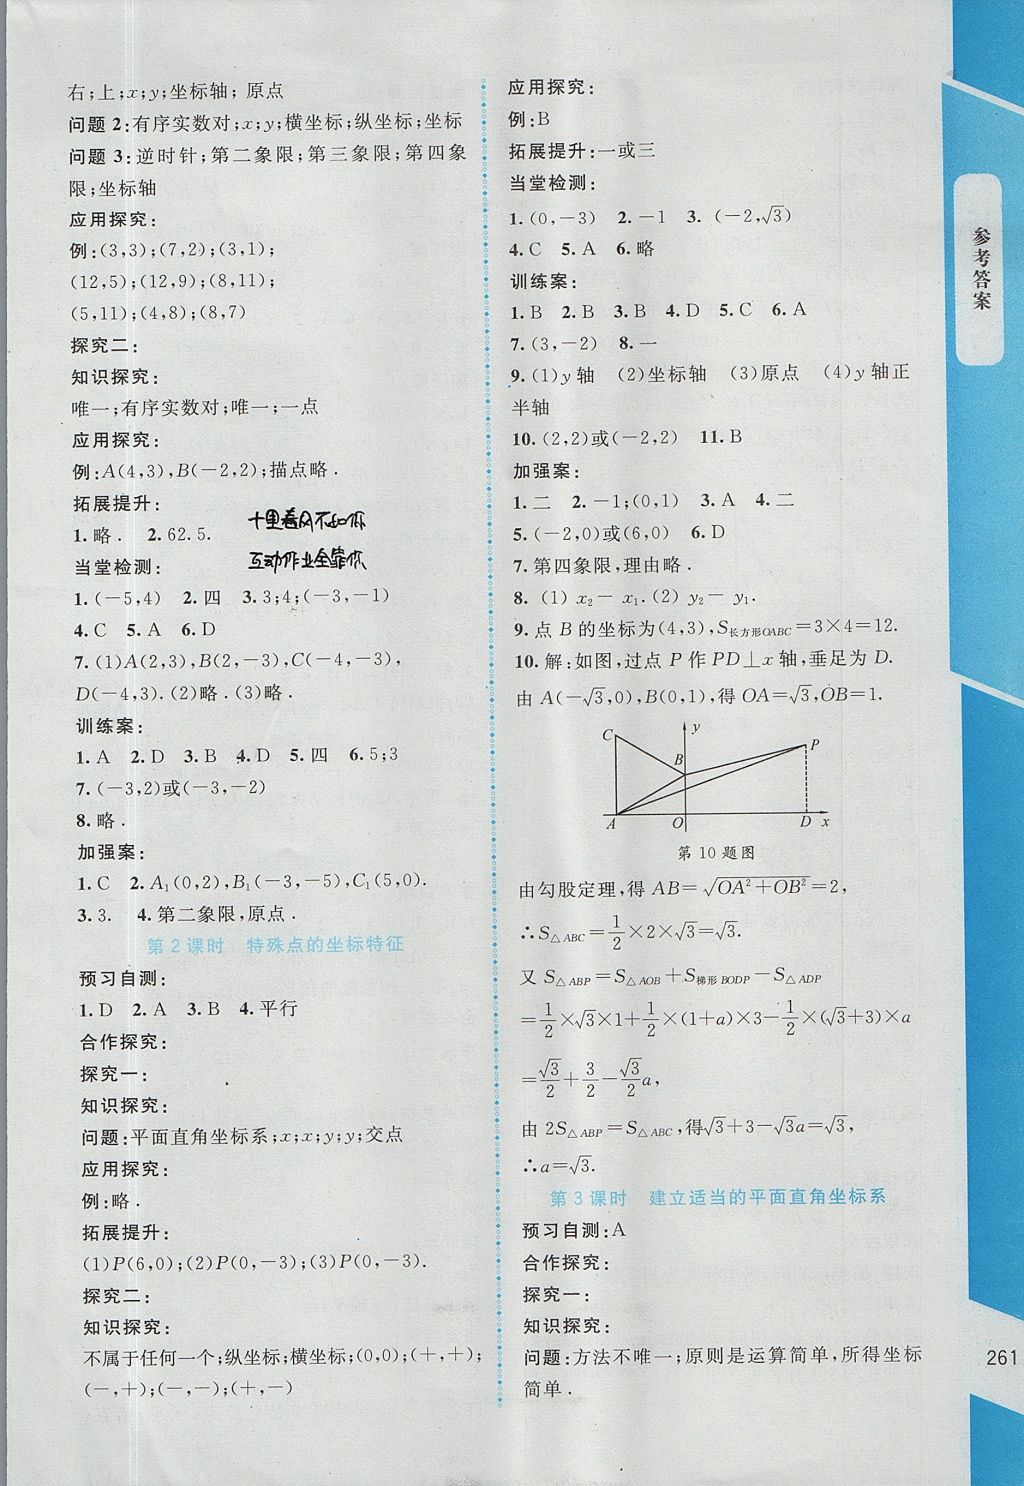 右;上;x;y;坐标轴; 原点
问题 2:有序实数对;x;y;横坐标;纵坐标;坐标
问题 3:逆时针;第二象限;第三象限;第四象
限;坐标轴
应用探究:
例:(3,3);(7,2);(3,1);
(12,5);(12,9);(8,11);
(5,11);(4,8);(8,7)
探究二:
知识探究:
唯一;有序实数对;唯一;一点
应用探究:
例:A(4,3),B(-2,2);描点略.
拓展提升:
1.略. 2.62.5.
十里春风不如你
互动作业全靠你
当堂检测:
1.(-5,4) 2.四 3.3;4;(-3,-1)
4.C 5.A 6.D
7.(1)A(2,3),B(2,-3),C(-4,-3),
D(-4,3).(2)略.(3)略.
训练案:
1.A 2.D 3.B 4.D 5.四 6.5;3
7.(-3,2)或(-3,-2)
8.略.
加强案:
1.C 2.A₁(0,2),B₁(-3,-5),C₁(5,0).
3.3. 4.第二象限,原点.
第 2 课时 特殊点的坐标特征
预习自测:
1.D 2.A 3.B 4.平行
合作探究:
探究一:
知识探究:
问题:平面直角坐标系;x;x;y;y;交点
应用探究:
例:略.
拓展提升:
(1)P(6,0);(2)P(0,-3);(3)P(0,-3).
探究二:
知识探究:
不属于任何一个;纵坐标;横坐标;(0,0);(+,+);
(-,+);(-,-);(+,-)
应用探究:
例:B
拓展提升:一或三
当堂检测:
1.(0,-3) 2.-1 3.(-2,√3)
4.C 5.A 6.略
训练案:
1.B 2.B 3.B 4.D 5.C 6.A
7.(3,-2) 8.一
9.(1)y 轴 (2)坐标轴 (3)原点 (4)y 轴正
半轴
10.(2,2)或(-2,2) 11.B
加强案:
1.二 2.-1;(0,1) 3.A 4.二
5.(-2,0)或(6,0) 6.D
7.第四象限,理由略.
8. (1) x₂- x₁.(2) y₂- y₁.
9.点 B 的坐标为(4,3),S长方形OABC=3×4=12.
10.解:如图,过点 P 作 PD⊥x 轴,垂足为 D.
由 A(-√3,0),B(0,1),得 OA=√3,OB=1.
C y P B A O D x
第 10 题图
由勾股定理,得 AB=√(OA²+OB²)=2,
∴S△ABC=1/2×2×√3=√3.
又 S△ABP=S△AOB+S梯形BODP-S△ADP
=1/2×√3×1+1/2×(1+a)×3-1/2×(√3+3)×a
=√3/2+3/2-√3/2a,
由 2S△ABP=S△ABC,得√3+3-√3a=√3,
∴a=√3.
第 3 课时 建立适当的平面直角坐标系
预习自测:A
合作探究:
探究一:
知识探究:
问题:方法不唯一;原则是运算简单,所得坐标
简单.
参考答案
261